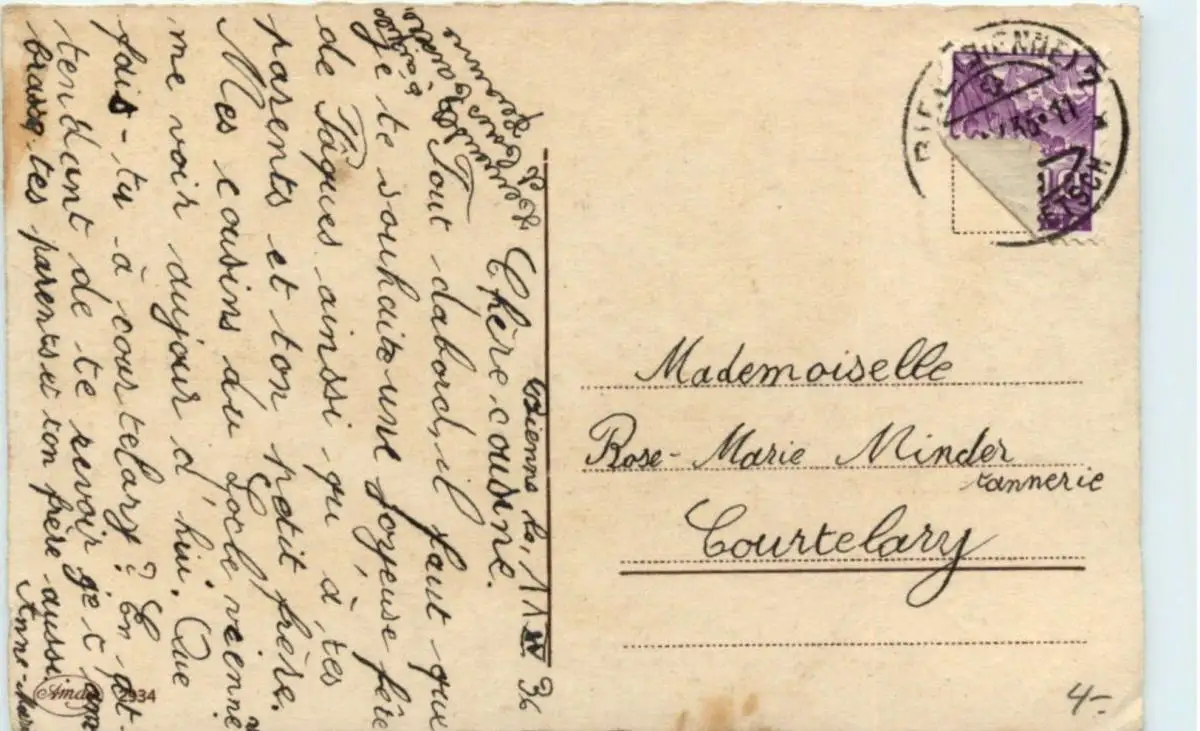 Bienne le, 11 IV 36
Chère cousine.
Tout dabord, il faut que
je te souhaite une joyeuse fête
de Pâques ainssi qu à tes
parents et ton petit frère.
Mes cousins du Locle vienne
me voir aujour d'hui. Que
fais-tu à courtelary? En at-
tendant de te revoir je t em
brasse, tes parents et ton frère aussi.
Anne-Marie
Mademoiselle
Rose-Marie Minder
tannerie
Courtelary
BIEL (BIENNE) 2
36-11
Amag 2934
4-